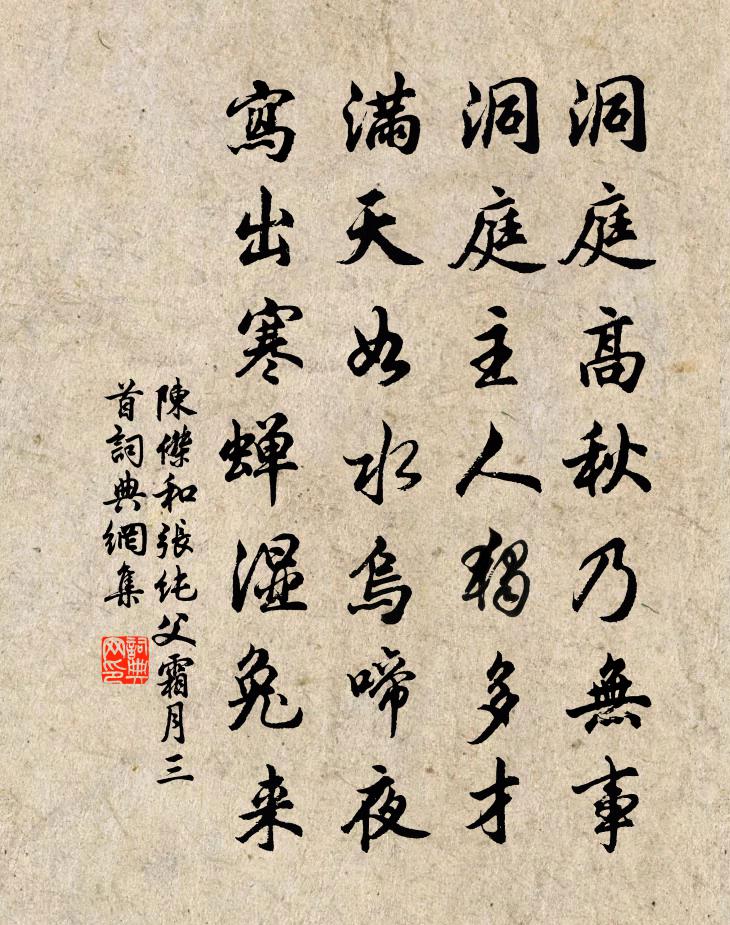 洞庭高秋乃無事
洞庭主人獨多才
满天如水烏啼夜
寫出寒蝉湿兔来
陳傑和張純父霜月三
首詞典網集
詞典
网印